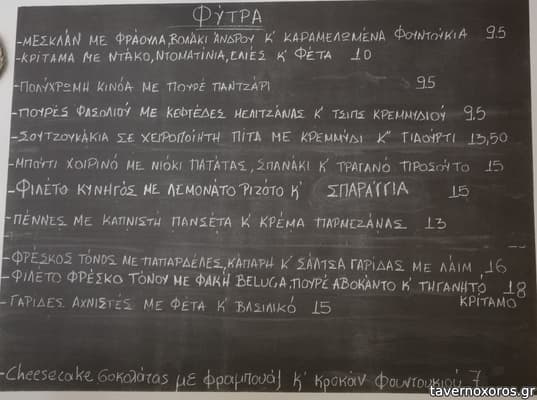 ΦΥΤΡΑ
-ΜΕΣΚΛΑΝ ΜΕ ΦΡΑΟΥΛΑ, ΒΟΛΑΚΙ ΆΝΔΡΟΥ Κ' ΚΑΡΑΜΕΛΩΜΕΝΑ ΦΟΥΝΤΟΥΚΙΑ 9.5
-ΚΡΙΤΑΜΑ ΜΕ ΝΤΑΚΟ, ΝΤΟΜΑΤΙΝΙΑ, ΕΛΙΕΣ Κ' ΦΕΤΑ 10
-ΠΟΛΥΧΡΩΜΗ ΚΙΝΟΑ ΜΕ ΠΟΥΡΕ ΠΑΝΤΖΑΡΙ 9.5
-ΠΟΥΡΕΣ ΦΑΣΟΛΙΟΥ ΜΕ ΚΕΦΤΕΔΕΣ ΜΕΛΙΤΖΑΝΑΣ Κ' ΤΣΙΠΣ ΚΡΕΜΜΥΔΙΟΥ 9.5
-ΣΟΥΤΖΟΥΚΑΚΙΑ ΣΕ ΧΕΙΡΟΠΟΙΗΤΗ ΠΙΤΑ ΜΕ ΚΡΕΜΜΥΔΙ Κ" ΓΙΑΟΥΡΤΙ 13,50
-ΜΠΟΥΤΙ ΧΟΙΡΙΝΟ ΜΕ ΝΙΟΚΙ ΠΑΤΑΤΑΣ, ΣΠΑΝΑΚΙ Κ' ΤΡΑΓΑΝΟ ΠΡΟΣΟΥΤΟ 15
-ΦΙΛΕΤΟ ΚΥΝΗΓΟΣ ΜΕ ΛΕΜΟΝΑΤΟ ΡΙΖΟΤΟ Κ' ΣΠΑΡΑΓΓΙΑ 15
-ΠΕΝΝΕΣ ΜΕ ΚΑΠΝΙΣΤΗ ΠΑΝΣΕΤΑ Κ' ΚΡΕΜΑ ΠΑΡΜΕΖΑΝΑΣ 13
-ΦΡΕΣΚΟΣ ΤΟΝΟΣ ΜΕ ΠΑΠΑΡΔΕΛΕΣ, ΚΑΠΑΡΗ Κ' ΣΑΛΤΣΑ ΓΑΡΙΔΑΣ ΜΕ ΛΑΙΜ 16
-ΦΙΛΕΤΟ ΦΡΕΣΚΟ ΤΟΝΟΥ ΜΕ ΦΑΚΗ BELUGA, ΠΟΥΡΕ ΑΒΟΚΑΝΤΟ Κ' ΤΗΓΑΝΗΤΟ 18
ΚΡΙΤΑΜΟ
-ΓΑΡΙΔΕΣ ΑΧΝΙΣΤΕΣ ΜΕ ΦΕΤΑ Κ' ΒΑΣΙΛΙΚΟ 15
-Cheesecake σοκολάτας με φραμπουάζ κ' κροκάν φουντουκιού 7
tavernoxoros.gr